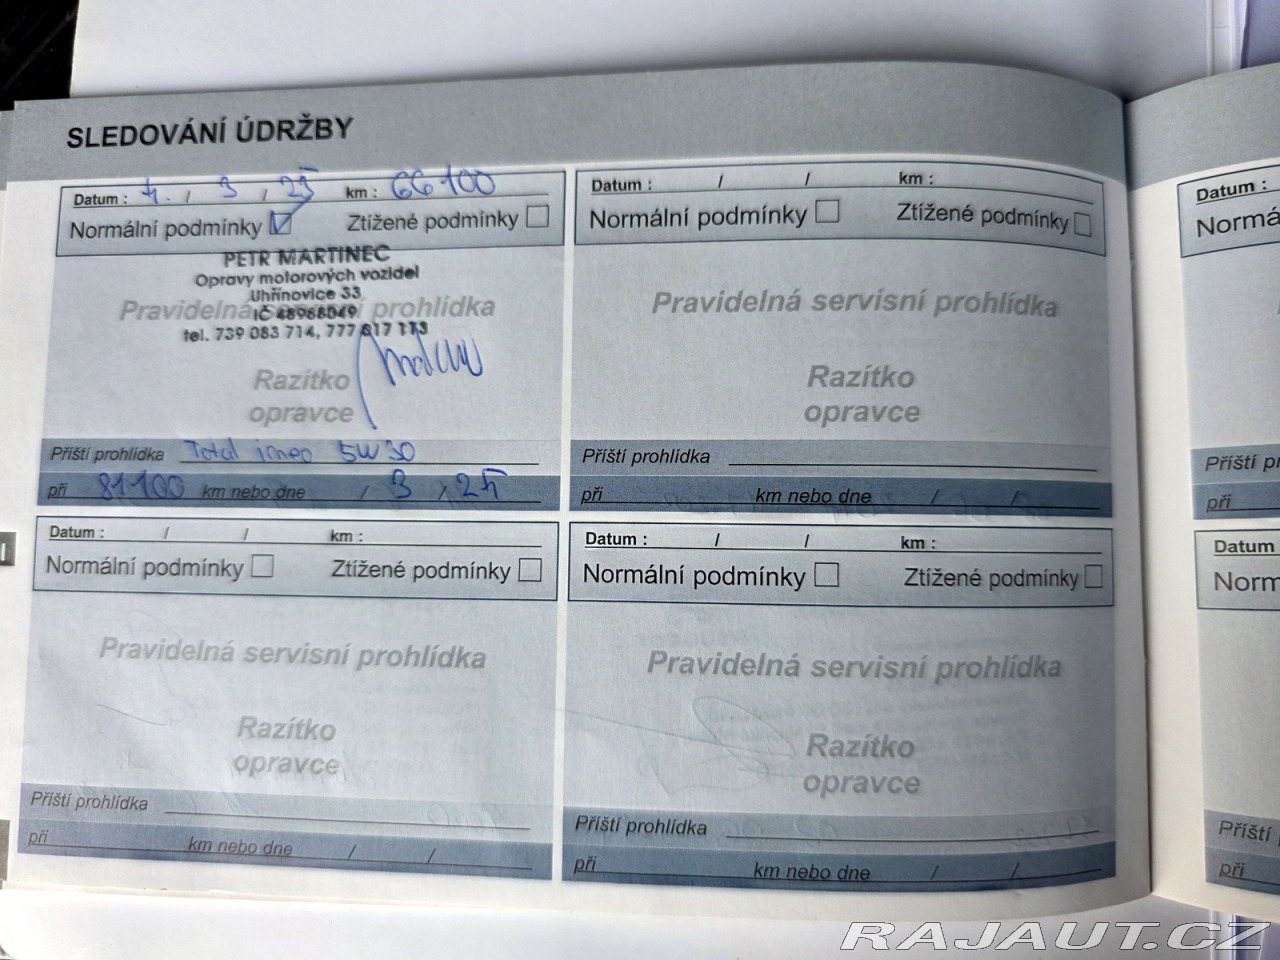 SLEDOVÁNÍ ÚDRŽBY
Datum : 4. / 3 / 25 km : 66 100
Normální podmínky Ztížené podmínky
PETR MARTINEC
Opravy motorových vozidel
Uhřínovice 33
IČ 48968049
tel. 739 083 714, 777 817 113
Pravidelná servisní prohlídka
Razítko
opravce
Příští prohlídka Total ineo 5W30
při 81100 km nebo dne / 3 / 25
Datum : / / km :
Normální podmínky Ztížené podmínky
Pravidelná servisní prohlídka
Razítko
opravce
Příští prohlídka
při km nebo dne / /
Datum : / / km :
Normální podmínky Ztížené podmínky
Pravidelná servisní prohlídka
Razítko
opravce
Příští prohlídka
při km nebo dne / /
Datum : / / km :
Normální podmínky Ztížené podmínky
Pravidelná servisní prohlídka
Razítko
opravce
Příští prohlídka
při km nebo dne / /
Datum :
Normá
Příští p
při
Datum
Norm
Příští
při
RAJAUT.CZ